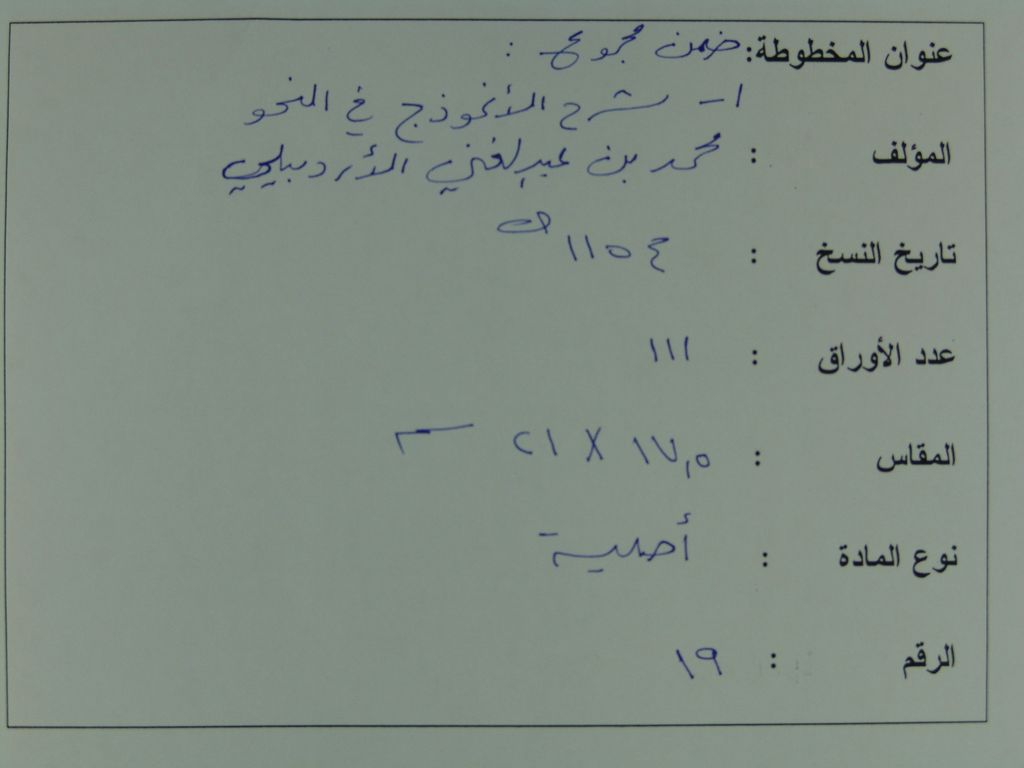 عنوان المخطوطة: ضمن مجموع :
١ - شرح الأنموذج في النحو
المؤلف : محمد بن عبدالغني الأردبيلي
تاريخ النسخ : ١١٥٤ هـ
عدد الأوراق : ١١١
المقاس : ١٧,٥ X ٢١ سم
نوع المادة : أصلية
الرقم : ١٩